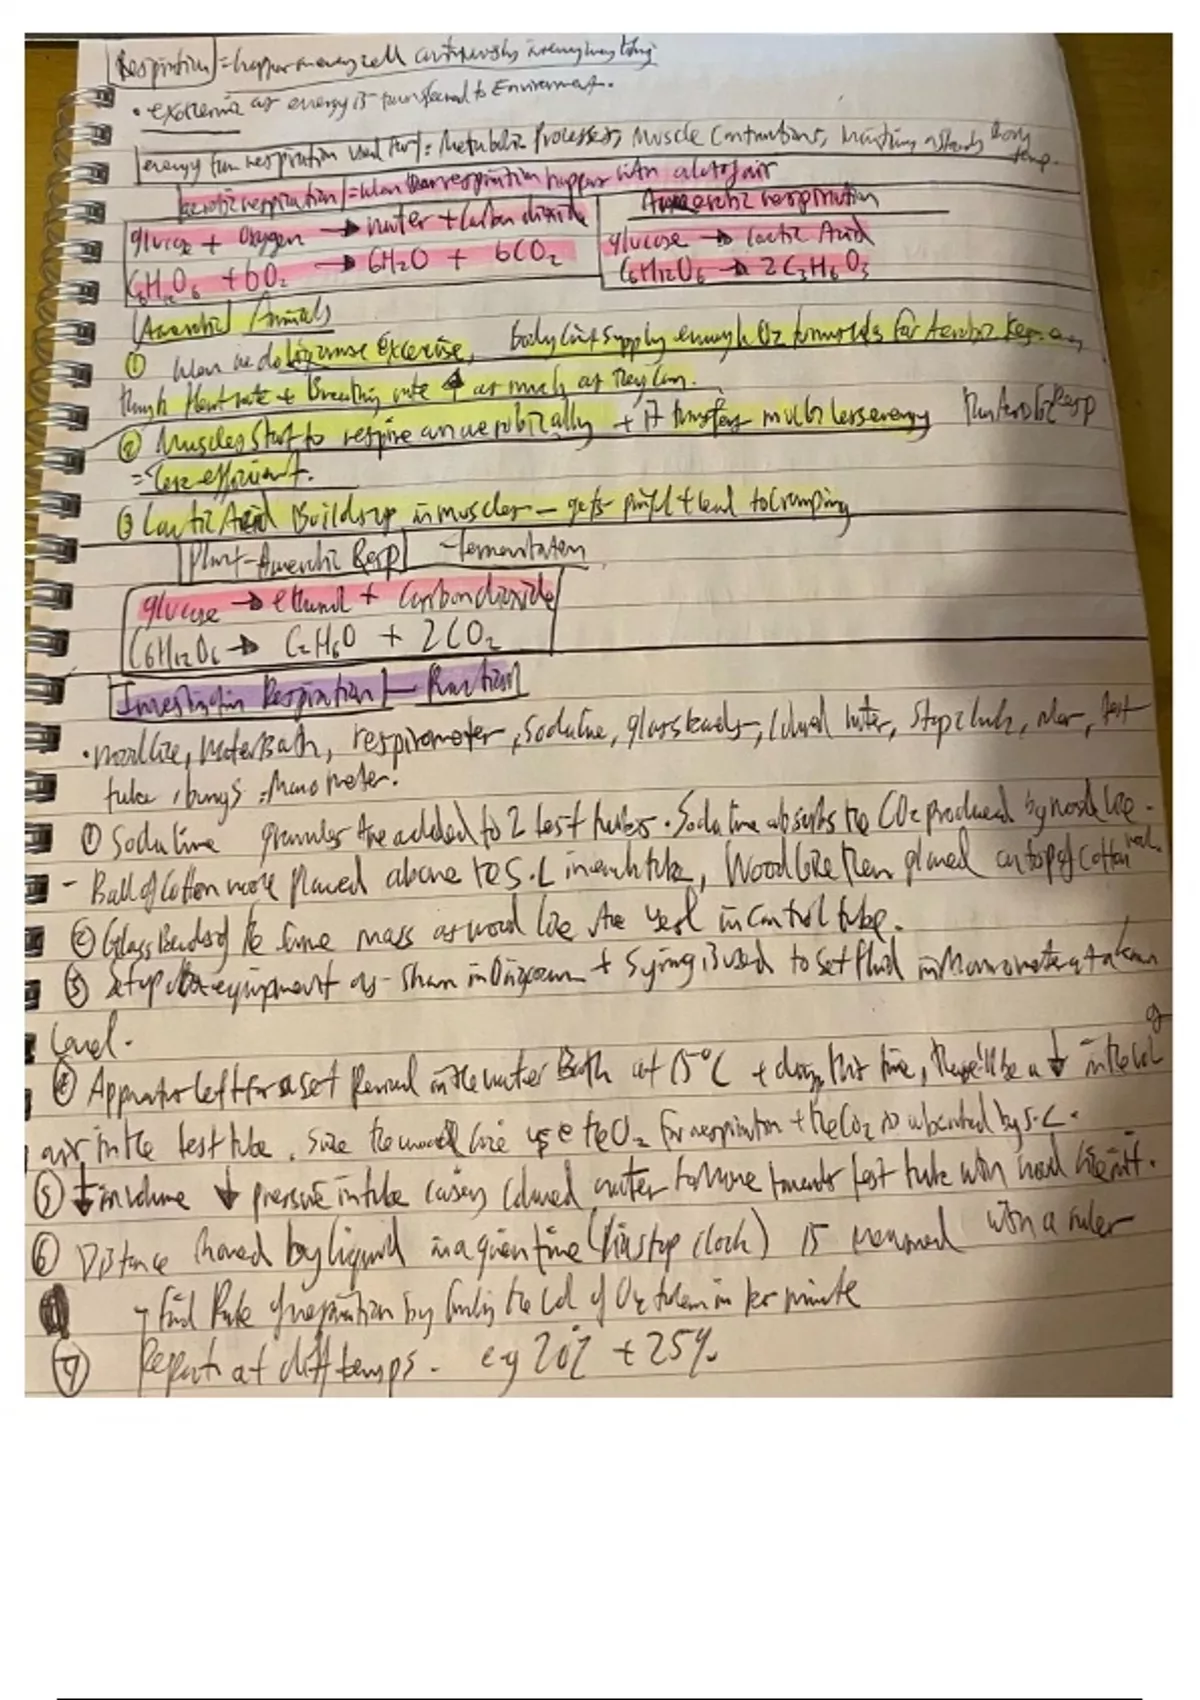 Respiration = happens in every cell continuously in every living thing
• exothermic as energy is transferred to Environment.
energy from respiration used for: Metabolic Processes, Muscle Contractions, body
temp.
aerobic respiration = when respiration happens with a lot of air
Anaerobic respiration
glucose + Oxygen → water + Carbon dioxide
glucose → lactic Acid
C6H12O6 + 6O2 → 6H2O + 6CO2
C6H12O6 → 2C3H6O3
Anaerobic Animals
① When we do exercise, body can't supply enough O2 to muscles for Aerobic Resp. even
though Heart rate + Breathing rate ↑ as much as they can.
② Muscles Start to respire anaerobically + it transfers much less energy than Aerobic Resp
= less efficient.
③ Lactic Acid Builds up in muscles — gets painful + lead to cramping
Plant - Anaerobic Resp - fermentation
glucose → ethanol + Carbon dioxide
C6H12O6 → C2H6O + 2CO2
Respiration - Practical
• woodlice, Water Bath, respirometer, Soda lime, glass beads, Coloured water, Stop clock, ruler, test
tube, bungs, Manometer.
① Soda lime granules are added to 2 test tubes. Soda lime absorbs the CO2 produced by woodlice.
- Ball of Cotton wool placed above the S.L in each tube, Woodlice then placed on top of Cotton wool.
② Glass Beads of the Same mass as wood lice are used in Control tube.
③ Set up the equipment as shown in Diagram + Syringe is used to set fluid in Manometer at a known
Level.
④ Apparatus left for a set Period in the water Bath at 15°C + during this time, there'll be a ↓ in the vol of
air in the test tube. Since the wood lice use the O2 for respiration + the CO2 is absorbed by S.L.
⑤ ↓ in volume ↓ pressure in tube causing Coloured water to Move towards test tube with wood lice in it.
⑥ Distance moved by liquid in a given time (stop clock) is measured with a ruler
→ Find Rate of respiration by the vol of O2 taken in per minute
Repeat at diff temps. eg 20% + 25%